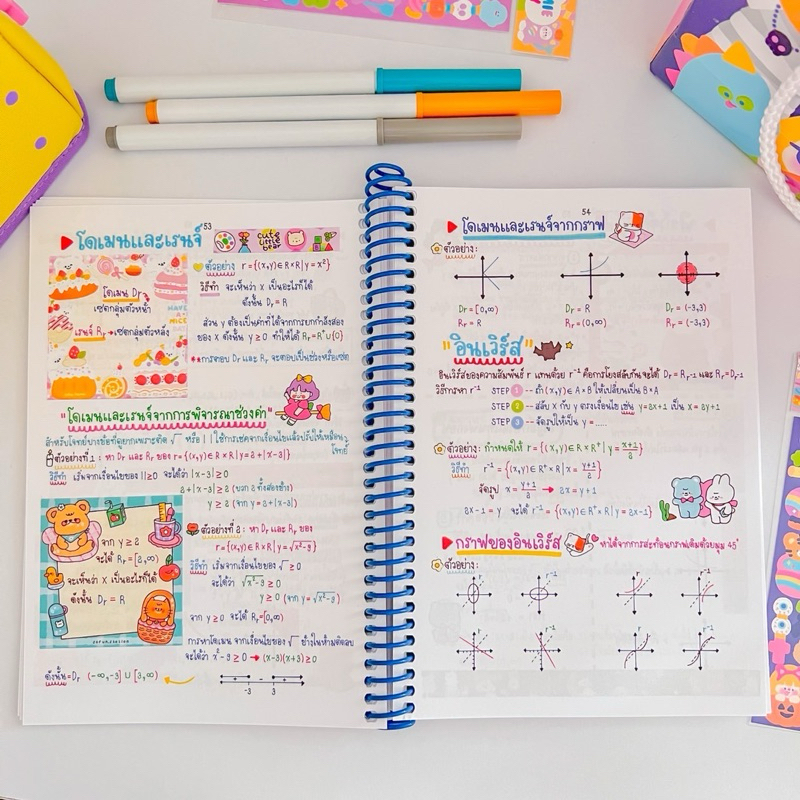 53
โดเมนและเรนจ์
cute little bear
โดเมน Dr
เซตกลุ่มตัวหน้า
เรนจ์ Rr → เซตกลุ่มตัวหลัง
HAVE A NICE
ตัวอย่าง r = {(x,y) ∈ R × R | y = x²}
วิธีทำ จะเห็นว่า x เป็นอะไรก็ได้
ดังนั้น Dr = R
ส่วน y ต้องเป็นค่าที่ได้จากการยกกำลังสอง
ของ x ดังนั้น y ≥ 0 ทำให้ได้ Rr = R⁺∪{0}
**การตอบ Dr และ Rr จะตอบเป็นช่วงหรือเซต
"โดเมนและเรนจ์จากการพิจารณาช่วงค่า"
สำหรับโจทย์บางข้อที่ดูยากเพราะติด √ หรือ | | ใช้การเซตจากเงื่อนไขแล้วปรับให้เหมือนโจทย์
ตัวอย่างที่ 1 : หา Dr และ Rr ของ r = {(x,y) ∈ R × R | y = 2 + |x-3|}
วิธีทำ เริ่มจากเงื่อนไขของ | | ≥ 0 จะได้ว่า |x-3| ≥ 0
2 + |x-3| ≥ 2 (บวก 2 ทั้งสองข้าง)
y ≥ 2 (จาก y = 2 + |x-3|)
จาก y ≥ 2
จะได้ Rr = [2,∞)
จะเห็นว่า x เป็นอะไรก็ได้
ดังนั้น Dr = R
ตัวอย่างที่ 2 : หา Dr และ Rr ของ
r = {(x,y) ∈ R × R | y = √x²-9}
วิธีทำ เริ่มจากเงื่อนไขของ √ ≥ 0
จะได้ว่า √x²-9 ≥ 0
y ≥ 0 (จาก y = √x²-9)
จาก y ≥ 0 จะได้ Rr = [0,∞)
การหาโดเมน จากเงื่อนไขของ √ ข้างในห้ามติดลบ
จะได้ว่า x²-9 ≥ 0 → (x-3)(x+3) ≥ 0
ดังนั้น Dr (-∞,-3] ∪ [3,∞)
+ - +
-3 3
54
โดเมนและเรนจ์จากกราฟ
ตัวอย่าง:
Dr = [0,∞) Dr = R Dr = (-3,3)
Rr = R Rr = (0,∞) Rr = (-3,3)
"อินเวิร์ส"
อินเวิร์สของความสัมพันธ์ r แทนด้วย r⁻¹ คือการโยงสลับกัน จะได้ Dr = Rr⁻¹ และ Rr = Dr⁻¹
วิธีการหา r⁻¹ STEP 1 -- ถ้า (x,y) ∈ A × B ให้เปลี่ยนเป็น B × A
STEP 2 -- สลับ x กับ y ตรงเงื่อนไข เช่น y = 3x+1 เป็น x = 3y+1
STEP 3 -- จัดรูปให้เป็น y = .....
ตัวอย่าง: กำหนดให้ r = {(x,y) ∈ R × R⁺ | y = x+1/2}
วิธีทำ r⁻¹ = {(x,y) ∈ R⁺ × R | x = y+1/2}
จัดรูป x = y+1/2 → 2x = y+1
2x-1 = y จะได้ r⁻¹ = {(x,y) ∈ R⁺ × R | y = 2x-1}
กราฟของอินเวิร์ส หาได้จากการสะท้อนกราฟเดิมด้วยมุม 45°
ตัวอย่าง: